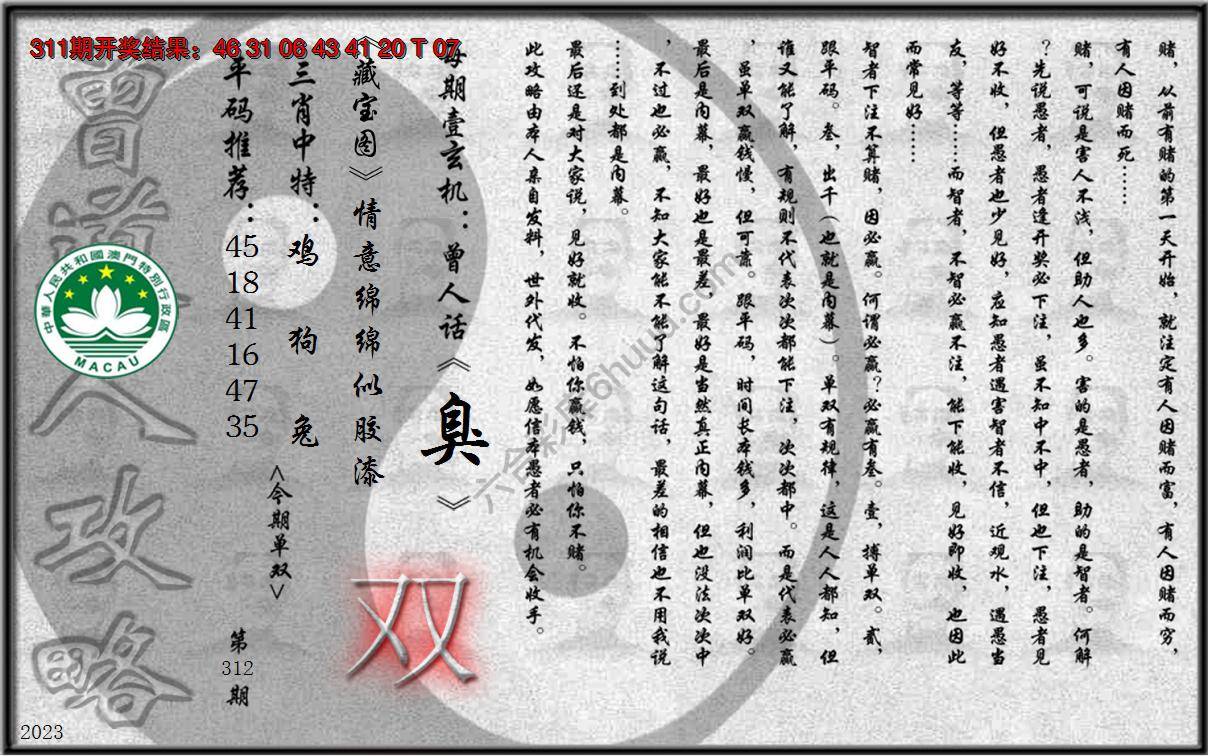 311期开奖结果：46 31 06 43 41 20 T 07
赌，从前有赌的第一天开始，就注定有人因赌而富，有人因赌而穷，
有人因赌而死……
赌，可说是害人不浅，但助人也多。害的是愚者，助的是智者。何解
？先说愚者，愚者逢开奖必下注，虽不知中不中，但也下注，愚者见
好不收，但愚者也少见好，应知愚者遇害智者不信，近观水，遇愚当
友，等等……而智者，不智必赢不注，能下能收，见好即收，也因此
而常见好……
智者下注不算赌，因必赢。何谓必赢？必赢有叁。壹，搏单双。贰，
跟平码。叁，出千（也就是内幕）。单双有规律，这是人人都知，但
谁又能了解，有规则不代表次次都能下注，次次都中。而是代表必赢
，虽单双赢钱慢，但可靠。跟平码，时间长本钱多，利润比单双好。
最后是内幕，最好也是最差，最好是当然真正内幕，但也没法次次中
，不过也必赢，不知大家能不能了解这句话，最差的相信也不用我说
……到处都是内幕。
最后还是对大家说，见好就收。不怕你赢钱，只怕你不赌。
此攻略由本人亲自发料，世外代发，如愿信本愚者必有机会收手。
每期壹玄机：曾人话《臭》
《藏宝图》情意绵绵似胶漆
双
三肖中特：鸡 狗 兔
<今期单双>
平码推荐：
45
18
41
16
47
35
第
312
期
曾道人攻略
中華人民共和國澳門特別行政區
MACAU
六合彩库6huuu.com
2023